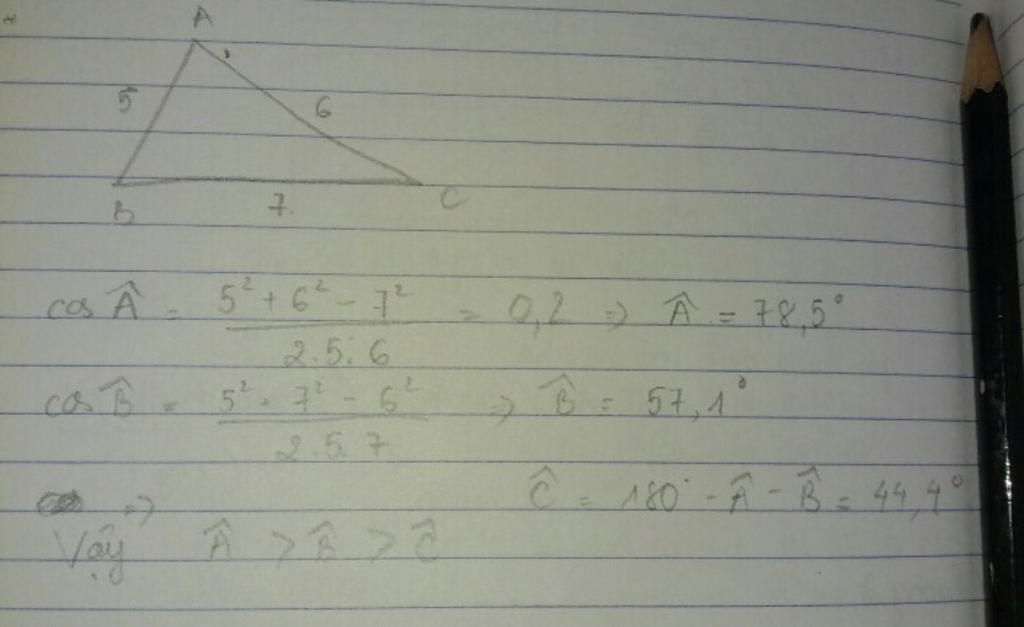 A
5 6
B 7 C
cos Â = (5² + 6² - 7²) / (2.5.6) = 0,2 => Â = 78,5°
cos B̂ = (5² + 7² - 6²) / (2.5.7) => B̂ = 57,1°
=> Ĉ = 180° - Â - B̂ = 44,4°
Vậy Â > B̂ > Ĉ